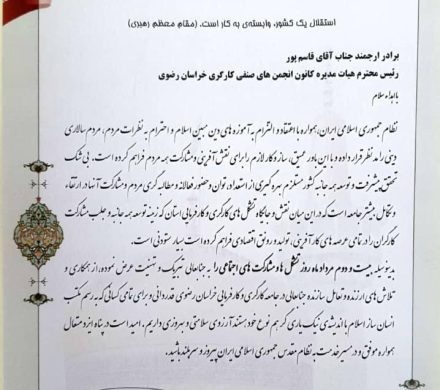 استقلال یک کشور، وابسته‌ی به کار است. (مقام معظم رهبری)
برادر ارجمند جناب آقای قاسم پور
رئیس محترم هیات مدیره کانون انجمن های صنفی کارگری خراسان رضوی
با اهداء سلام
نظام جمهوری اسلامی ایران، همواره با اعتقاد و التزام به آموزه های دین مبین اسلام و احترام به نظرات مردم، مردم سالاری
دینی را مد نظر قرار داده و با این باور عمیق، ساز و کار لازم را برای نقش آفرینی و مشارکت همه مردم فراهم کرده است. بی شک
تحقق پیشرفت و توسعه همه جانبه کشور مستلزم بهره گیری از استعداد، توان و حضور فعالانه و مطالبه گری مردم و مشارکت آنها در ارتقاء
و تکامل بیشتر جامعه است که در این میان نقش و جایگاه تشکل های کارگری و کارفرمایی استان که زمینه توسعه همه جانبه و جلب مشارکت
کارگران در تمامی عرصه های کارآفرینی، تولید و رونق اقتصادی فراهم کرده است بسیار ستودنی است.
بدینوسیله بیست و دوم مرداد ماه روز تشکل ها و مشارکت های اجتماعی را به جنابعالی تبریک و تهنیت عرض نموده، از همکاری و
تلاش های ارزنده و تعامل سازنده جنابعالی در جامعه کارگری و کارفرمایی خراسان رضوی قدردانی و برای تمامی کسانی که به رسم مکتب
انسان ساز اسلام با اندیشه ی نیک یاری گر هم نوع خود هستند آرزوی سلامتی و بهروزی داریم. امید است در پناه ایزد متعال
همواره موفق و در مسیر خدمت به نظام مقدس جمهوری اسلامی ایران پیروز و سربلند باشید.